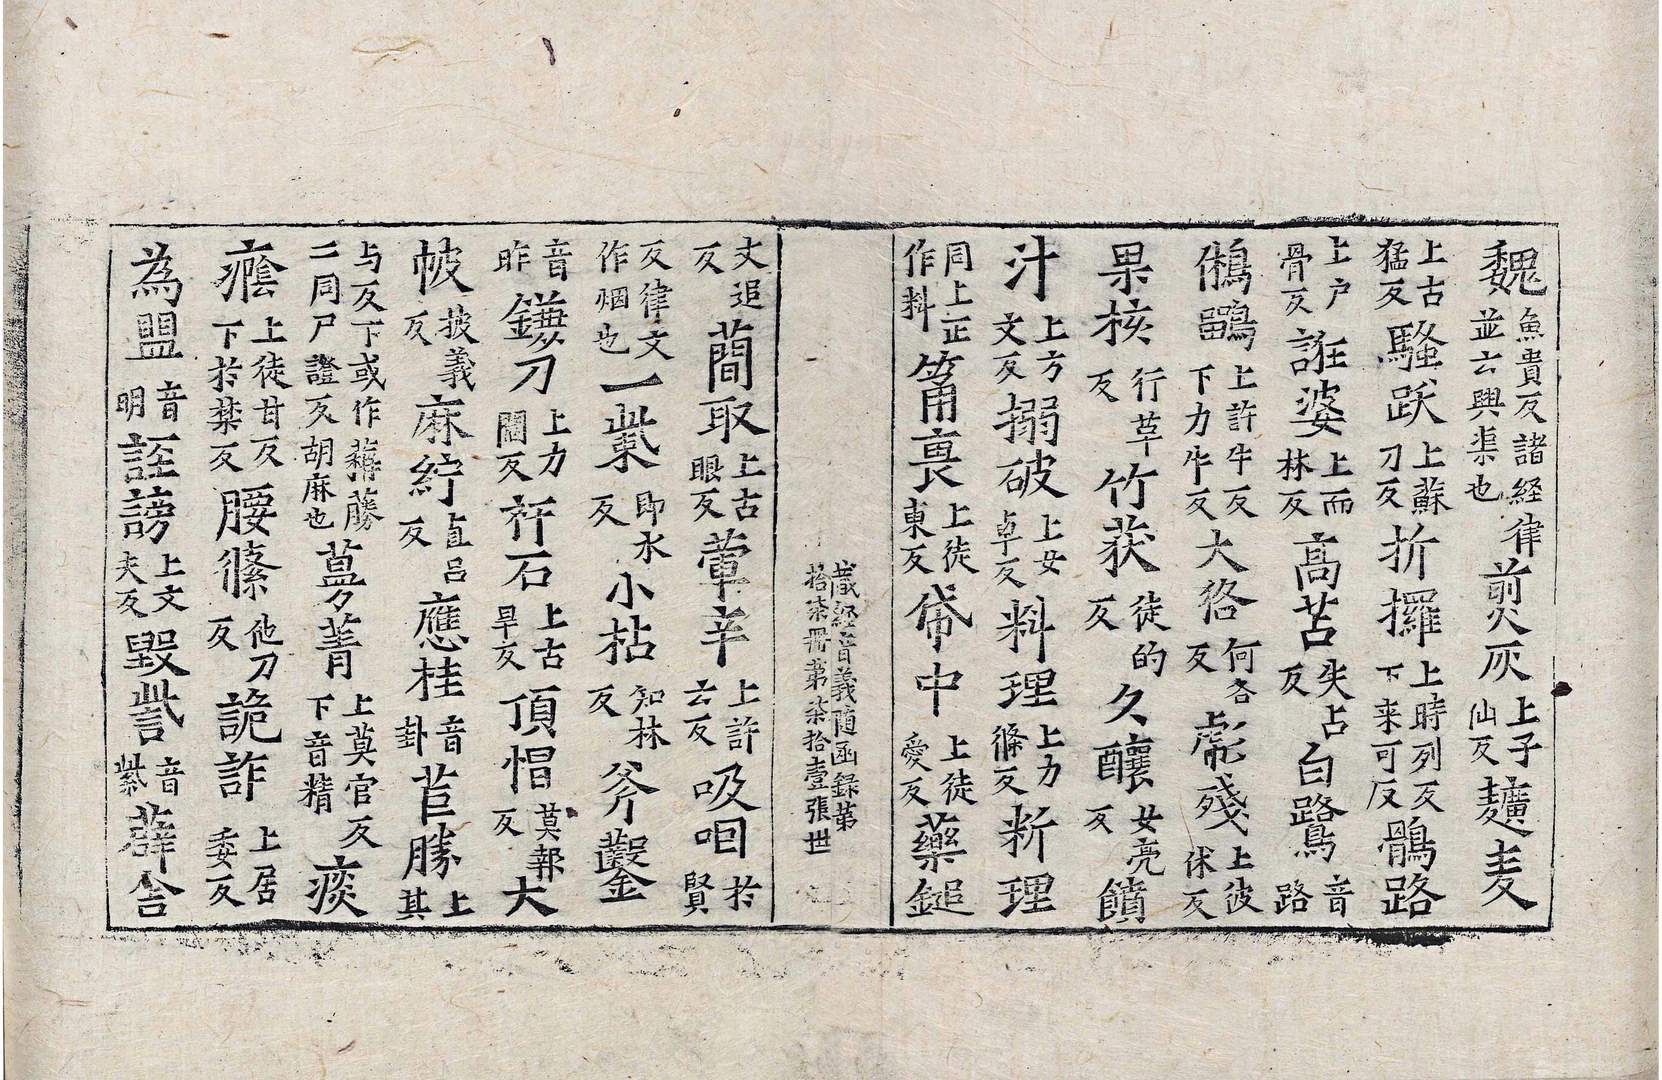 魏魚貴反諸経律並云興渠也煎灰上子仙反麨麦
上古猛反騷跃上蘇刀反折攞上時列反下来可反鶻路
上户骨反誑婆上而林反高苫失占反白鷺音路
鵂鶹上許牛反下力牛反大狢何各反彪殘上彼休反
果核行革反竹荻徒的反久釀女亮反饙
汁上方文反搦破上女卓反料理上力條反斯理
同上正作料筩裏上徒東反帒中上徒愛反藥鎚
藏経音義随函録第拾柒冊第柒拾壹張世
丈追反蕑取上古眼反葷辛上許云反吸咽於賢
反律文作烟也一㧘即水反小枯知林反斧鑿
音昨鎌刀上力閻反衦石上古旱反頂帽莫報反大
帔披義反麻紵直吕反應桂音卦苣勝上其
与反下或作蕂二同尸證反胡麻也蔓菁上莫官反下音精痰
癊上徒甘反下於禁反腰絛他刀反詭詐上居委反
為盟音明誣謗上文夫反毀訾音紫薜舍